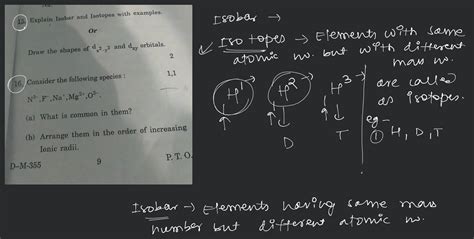 15. Explain Isobar and Isotopes with examples.
Or
Draw the shapes of d x²-y² and dxy orbitals.
2
16. Consider the following species :
1,1
N³⁻, F⁻, Na⁺, Mg²⁺, O²⁻.
(a) What is common in them?
(b) Arrange them in the order of increasing
Ionic radii.
D–M–355
9
P. T. O.
Isobar →
Isotopes → Elements with same
atomic no. but with different
mass no.
are called
as isotopes.
H¹
H²
H³
D
T
eg –
① H, D, T
Isobar → Elements having same mass
number but different atomic no.